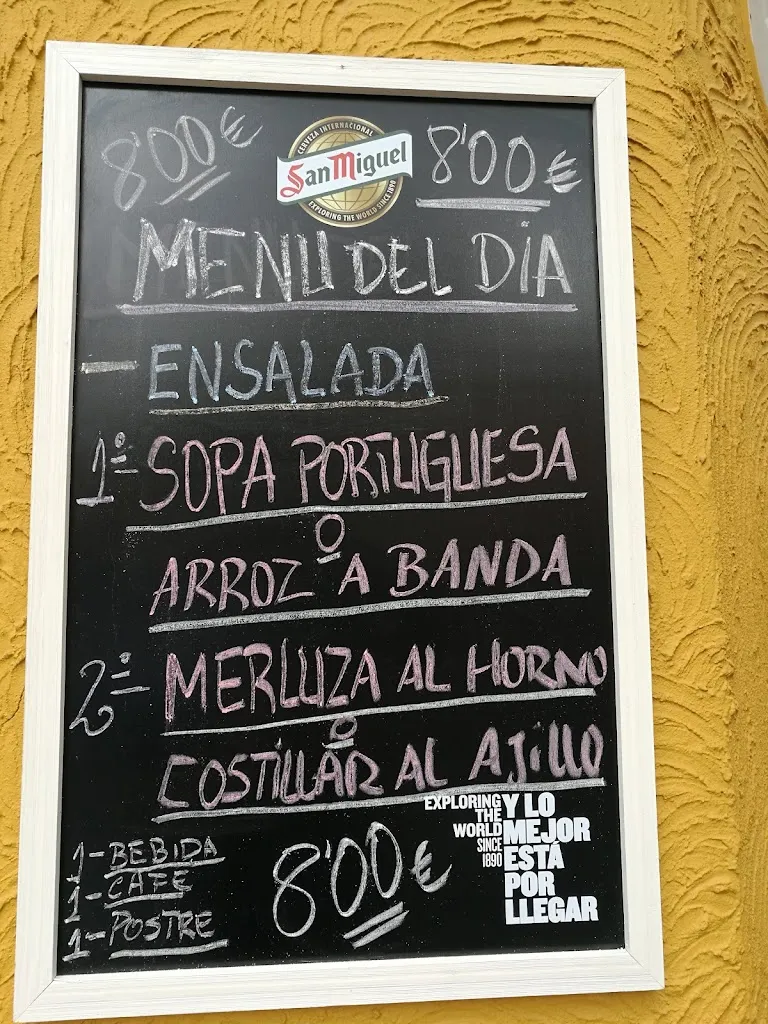 8'00 €
CERVEZA INTERNACIONAL
San Miguel
EXPLORING THE WORLD SINCE 1890
8'00 €
MENU DEL DÍA
- ENSALADA
1º= SOPA PORTUGUESA
O
ARROZ A BANDA
2º= MERLUZA AL HORNO
O
COSTILLAR AL AJiLLO
1-BEBIDA
1-CAFE
1-POSTRE
8'00 €
EXPLORING
THE
WORLD
SINCE
1890
Y LO
MEJOR
ESTÁ
POR
LLEGAR